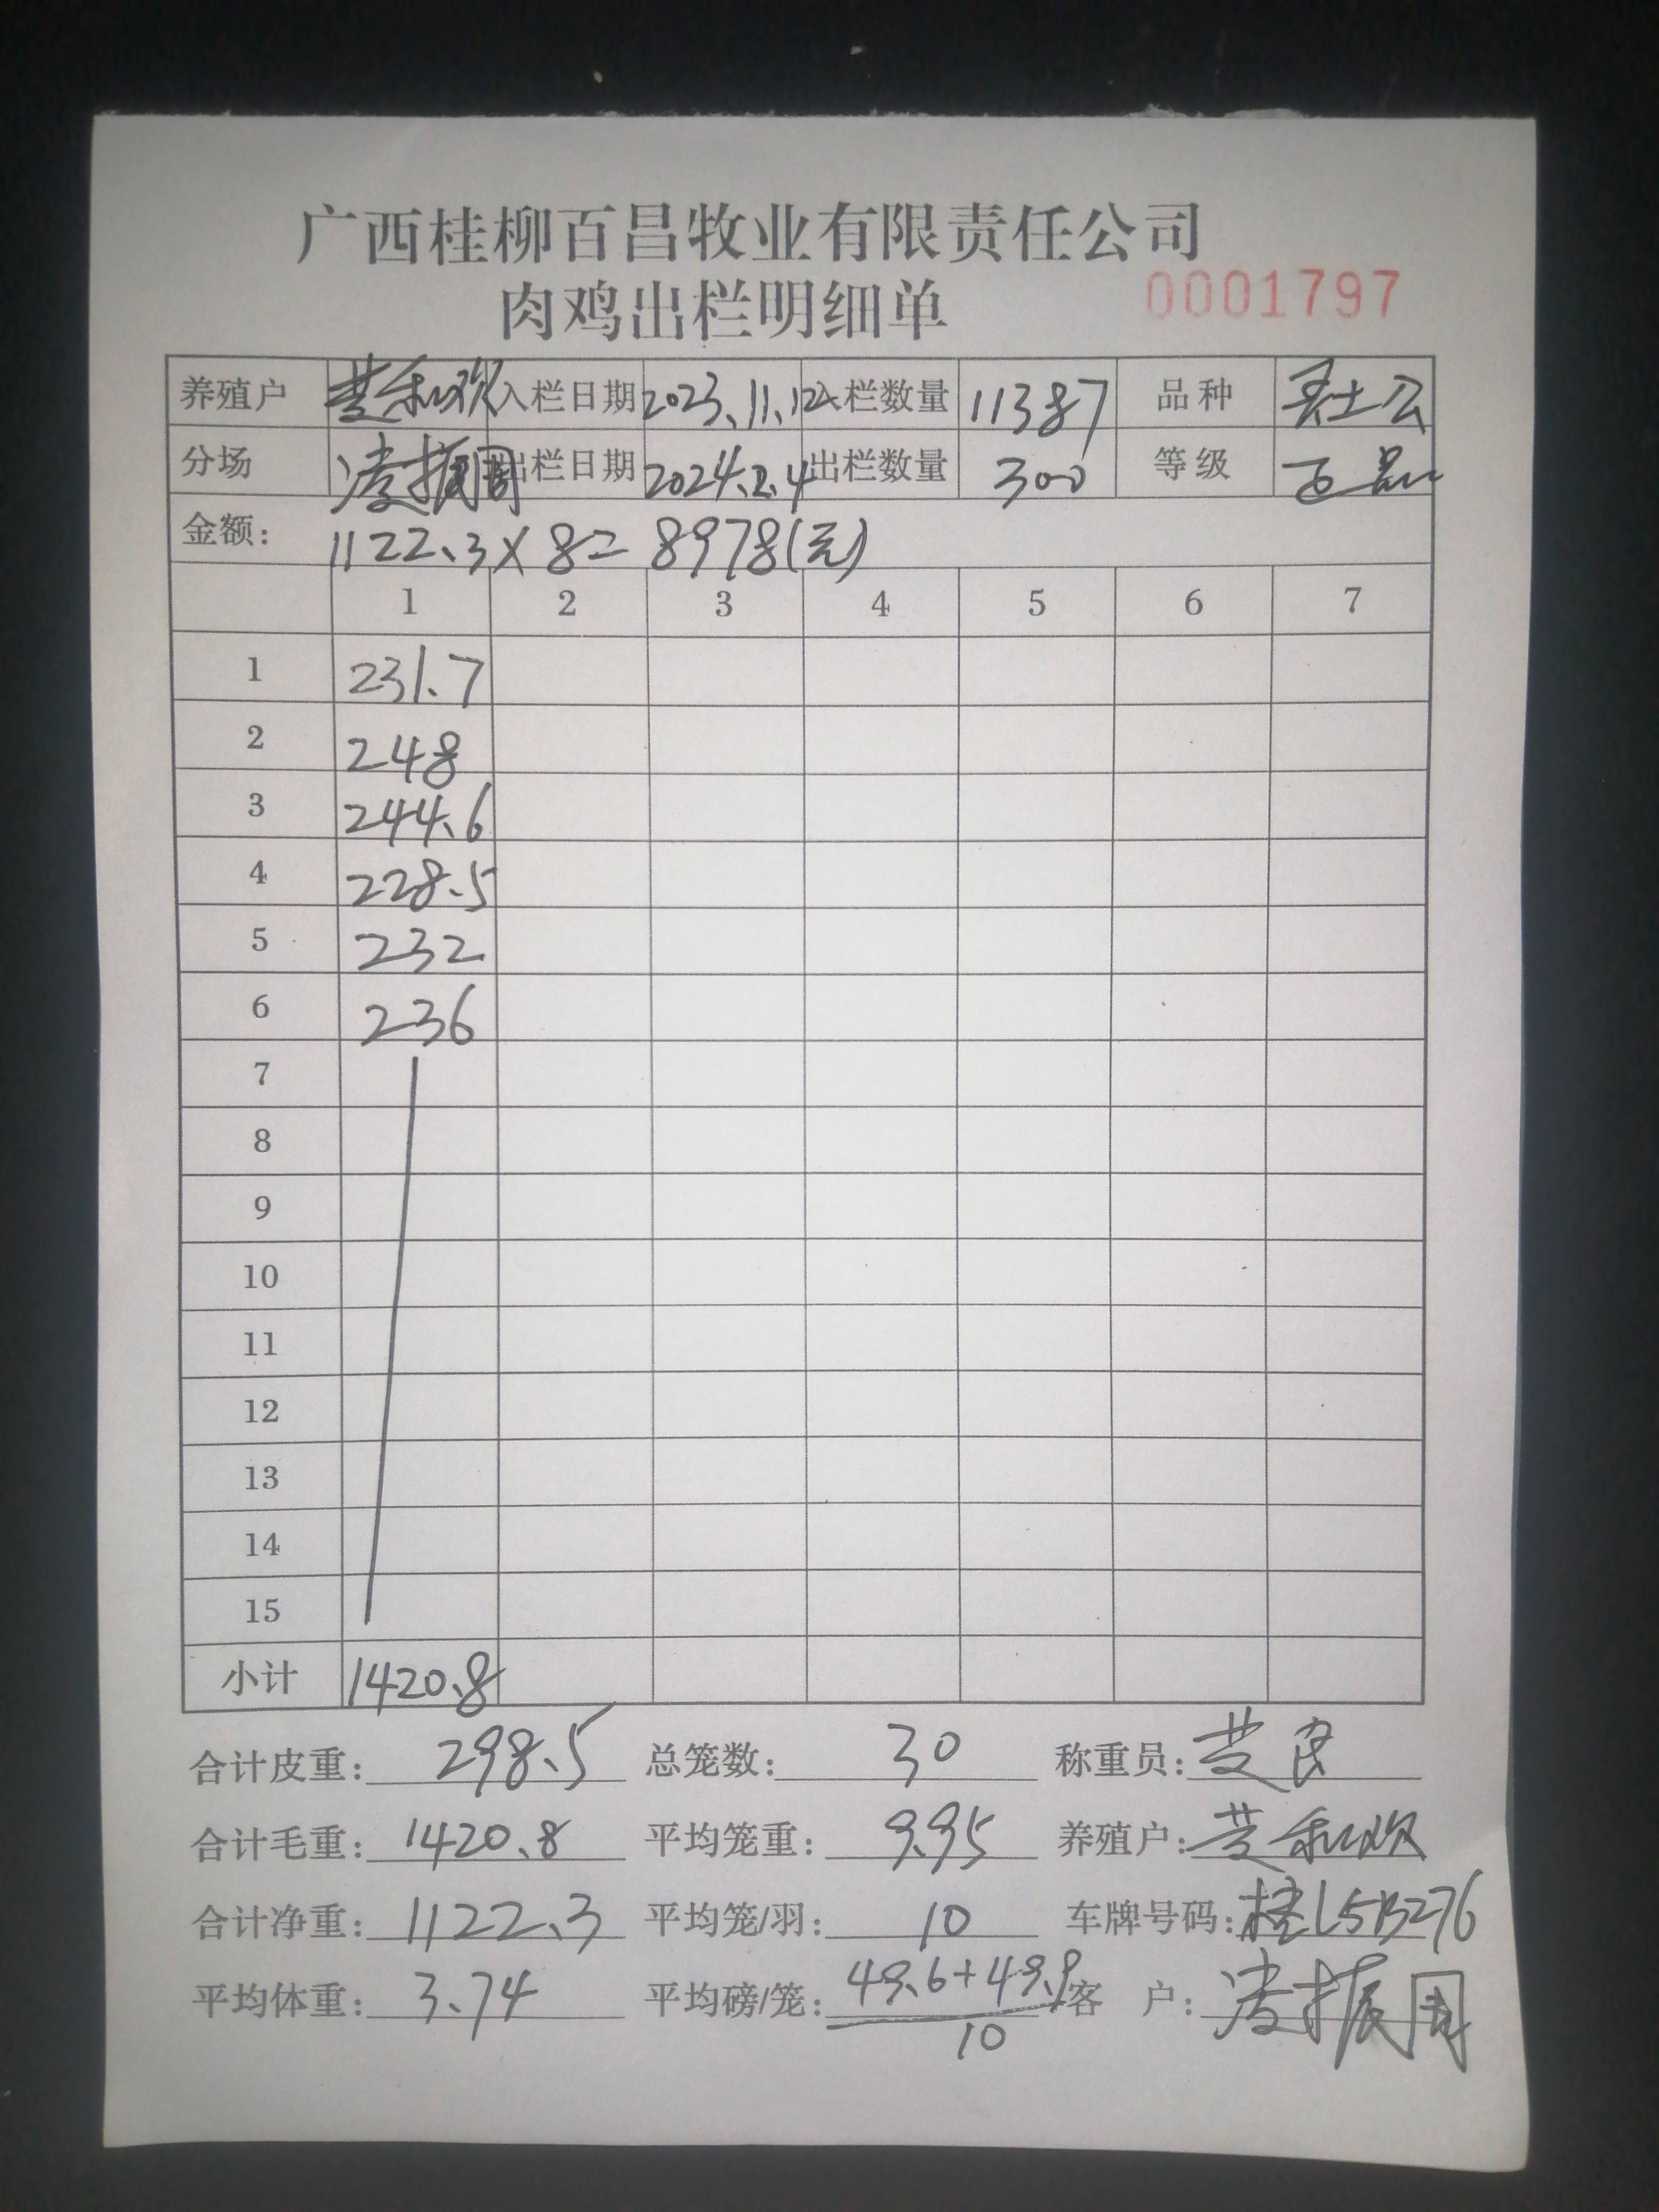 广西桂柳百昌牧业有限责任公司
肉鸡出栏明细单 0001797
养殖户 入栏日期 2023.11.12 入栏数量 11387 品种 公
分场 凌振国 出栏日期 2024.2.4 出栏数量 300 等级
金额: 1122.3×8=8978(元)
1 2 3 4 5 6 7
1 231.7
2 248
3 244.6
4 228.5
5 232
6 236
7
8
9
10
11
12
13
14
15
小计 1420.8
合计皮重: 298.5 总笼数: 30 称重员:
合计毛重: 1420.8 平均笼重: 9.95 养殖户:
合计净重: 1122.3 平均笼/羽: 10 车牌号码: 桂L5B276
平均体重: 3.74 平均磅/笼: 49.6+49.9 客 户: 凌振国
10